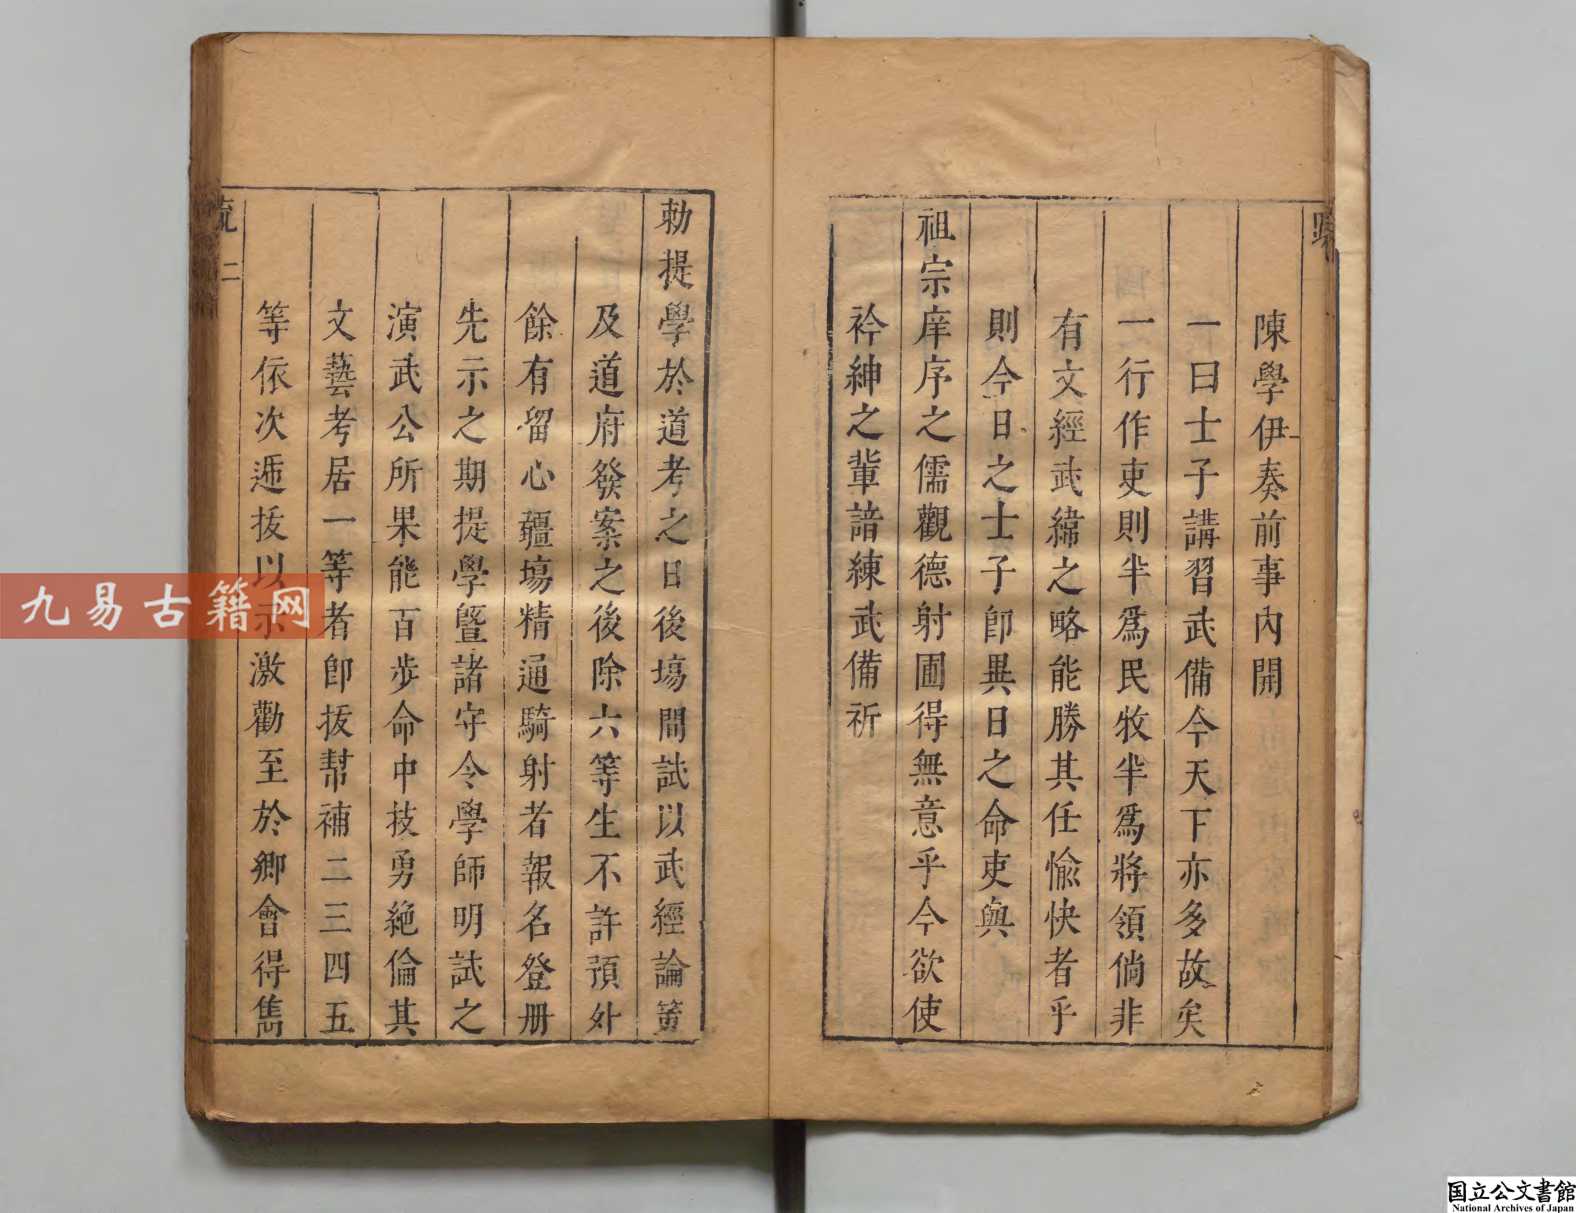 陳學伊奏前事內開
一曰士子講習武備今天下亦多故矣
一行作吏則半爲民牧半爲將領倘非
有文經武緯之略能勝其任愉快者乎
則今日之士子卽異日之命吏與
祖宗庠序之儒觀德射圃得無意乎今欲使
衿紳之輩諳練武備祈
勅提學於道考之日後場間試以武經論策
及道府發案之後除六等生不許預外
餘有留心疆場精通騎射者報名登册
先示之期提學曁諸守令學師明試之
演武公所果能百步命中技勇絶倫其
文藝考居一等者卽拔幫補二三四五
等依次遞拔以示激勸至於鄉會得雋
二
九易古籍网
国立公文書館
National Archives of Japan